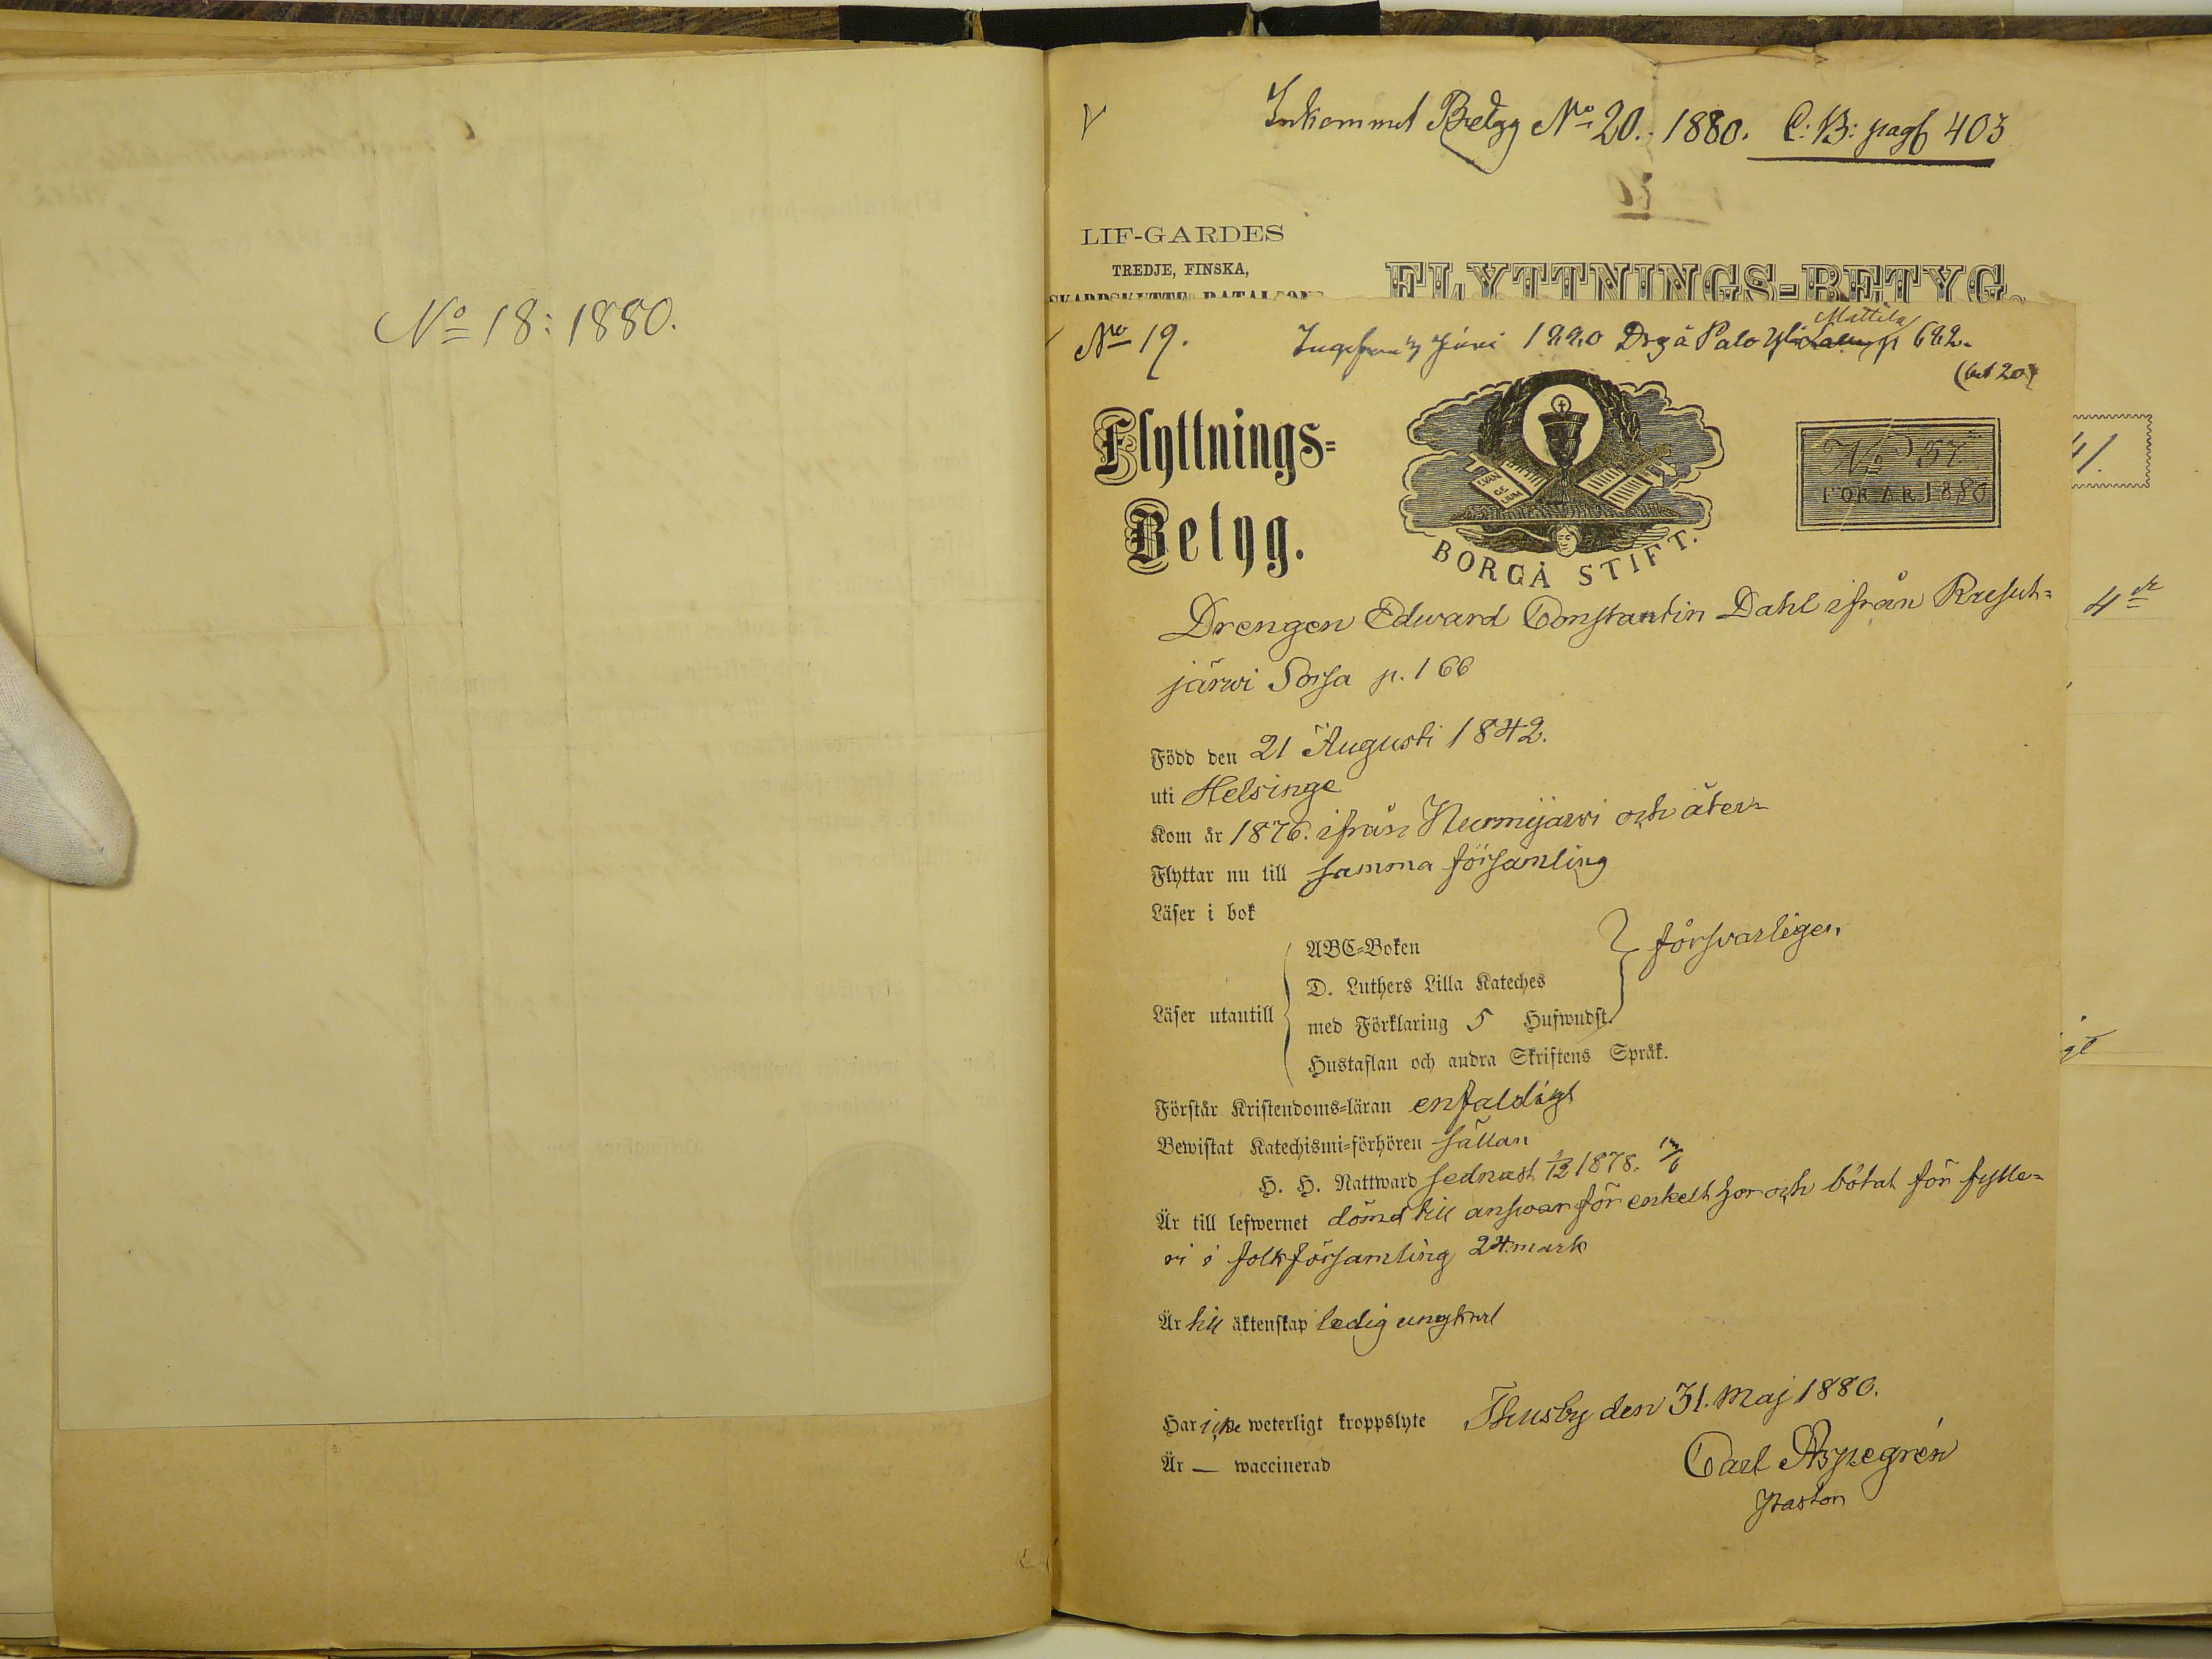 No 18: 1880.
Inkommet Betyg No 20. 1880. C: B: pag 403
LIF-GARDES
TREDJE, FINSKA,
SKARPSKYTTE BATALJON
FLYTTNINGS-BETYG.
No 19. Juni 1880 Drg å Palo Mattila p 682.
(bet 20)
Flyttnings=
Betyg.
EVAN
GE
LIUM
BORGÅ STIFT.
No 57
FÖR ÅR 1880
41.
Drengen Edward Constantin Dahl ifrån Ruskut=
järwi Sorsa p. 166
4
Född den 21 Augusti 1842.
uti Helsinge
Kom år 1876. ifrån Nurmijärwi och åter=
Flyttar nu till samma församling
Läser i bok
ABC=Boken
D. Luthers Lilla Kateches
Läser utantill med Förklaring 5 Hufwudst.
försvarligen
Hustaflan och andra Skriftens Språk.
Förstår Kristendoms=läran enfaldigt
Bewistat Katechismi=förhören sällan
H. H. Nattward sednast 1/12 1878.
Är till lefwernet dömd till answar för enkelt hor och bötat för fylle=
ri i folkförsamling 24 mark
Är till äktenskap ledig ungkarl
Har icke weterligt kroppslyte Thusby den 31. Maj 1880.
Är — waccinerad
Carl Aspegrén
Pastor